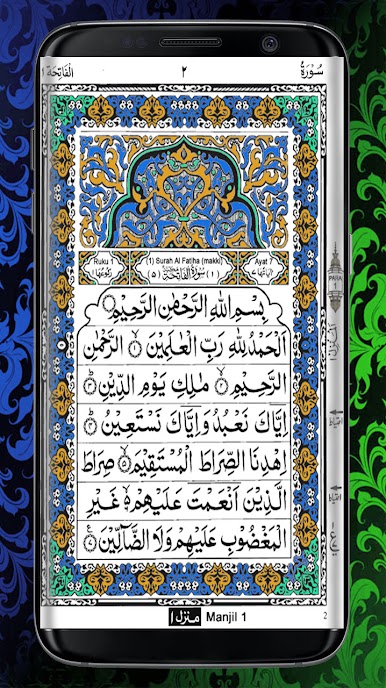 سُوْرَةُ ٢ الْفَاتِحَة ١
Ruku 1 (1) Surah Al Fatiha (makki) Ayat 7
(١) سُوْرَةُ الْفَاتِحَةِ (٥)
بِسْمِ اللّٰهِ الرَّحْمٰنِ الرَّحِيْمِ
اَلْحَمْدُ لِلّٰهِ رَبِّ الْعٰلَمِيْنَ ۙ‏﴿١﴾ الرَّحْمٰنِ
الرَّحِيْمِ ۙ‏﴿٢﴾ مٰلِكِ يَوْمِ الدِّيْنِ ؕ‏﴿٣﴾
اِيَّاكَ نَعْبُدُ وَاِيَّاكَ نَسْتَعِيْنُ ؕ‏﴿٤﴾
اِهْدِنَا الصِّرَاطَ الْمُسْتَقِيْمَ ۙ‏﴿٥﴾ صِرَاطَ
الَّذِيْنَ اَنْعَمْتَ عَلَيْهِمْ ۙ۬‏﴿٦﴾ غَيْرِ
الْمَغْضُوْبِ عَلَيْهِمْ وَلَا الضَّآلِّيْنَ‏﴿٧﴾
منزل ١ Manjil 1
2